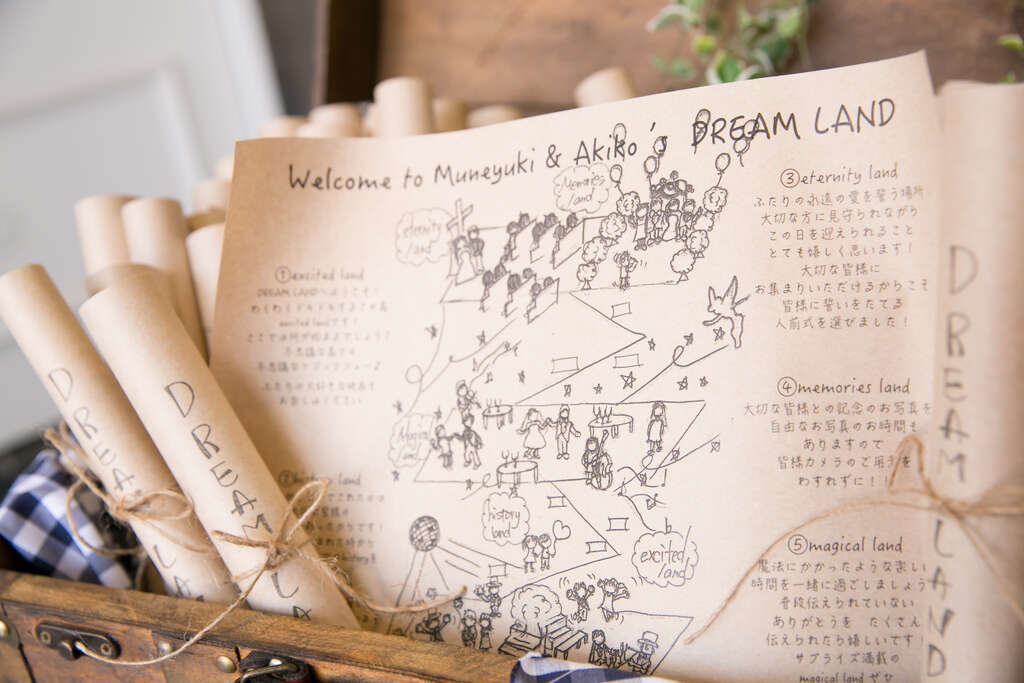 Welcome to Muneyuki & Akiko's DREAM LAND
①excited land
DREAM LANDへようこそ！
excited landです！
ここでは何が始まるでしょう？
不思議な
おたのしみください
②history land
eternity land
Memories land
Magical land
history land
excited land
③eternity land
ふたりの永遠の愛を誓う場所
大切な方に見守られながら
この日を迎えられること
とても嬉しく思います！
大切な皆様に
お集まりいただけるからこそ
皆様に誓いをたてる
人前式を選びました！
④memories land
大切な皆様との記念のお写真を
自由なお写真のお時間も
ありますので
皆様カメラのご用意を
わすれずに！！
⑤magical land
魔法にかかったような楽しい
時間を一緒に過ごしましょう
普段伝えられていない
ありがとうを たくさん
伝えられたら嬉しいです！
サプライズ満載の
magical land ぜひ
DREAM LA
DREAM LA
DREAM LAND